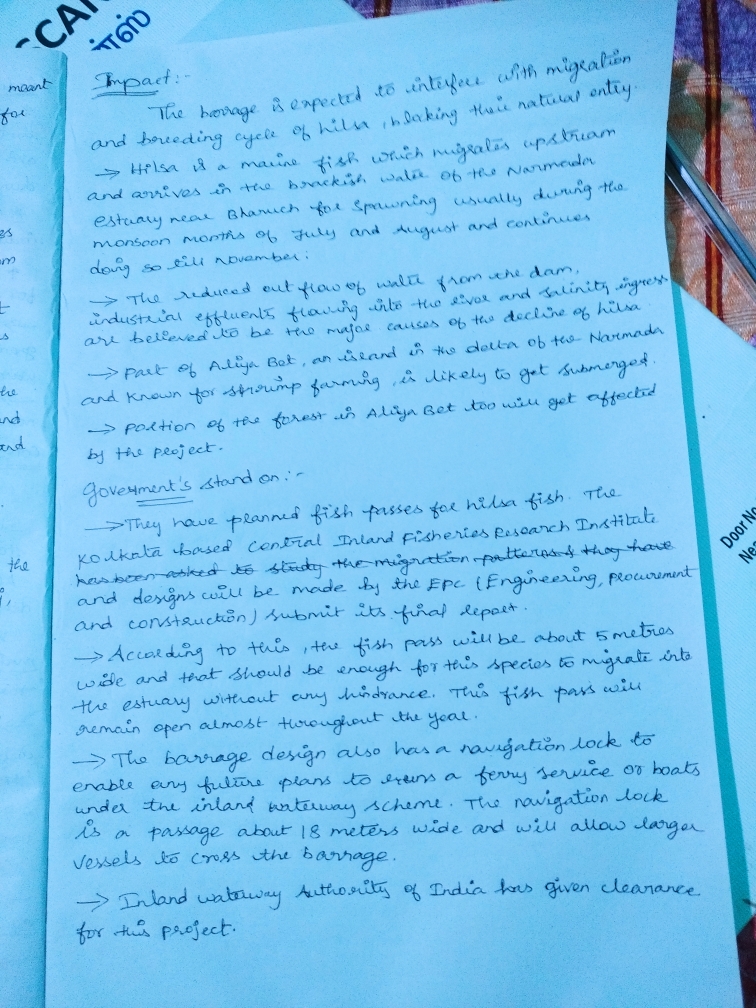 SCAN
ள்ஸ்
meant
for
es
m
t
s
the
and
and
the
Impact:-
The barrage is expected to interfere with migration
and breeding cycle of hilsa, blocking their natural entry.
→ Hilsa is a marine fish which migrates upstream
and arrives in the brackish water of the Narmada
estuary near Bharuch for spawning usually during the
monsoon months of July and August and continues
doing so till november.
→ The reduced out flow of water from the dam,
industrial effluents flowing into the river and salinity ingress
are believed to be the major causes of the decline of hilsa.
→ Part of Aliya Bet, an island in the delta of the Narmada
and known for shrimp farming, is likely to get submerged.
→ Portion of the forest in Aliya Bet too will get affected
by the project.
Goverment's stand on:-
→ They have planned fish passes for hilsa fish. The
Kolkata based Central Inland Fisheries Research Institute
has been asked to study the migration patterns & they have
and designs will be made by the EPC (Engineering, procurement
and construction) submit its final report.
→ According to this, the fish pass will be about 5 metres
wide and that should be enough for this species to migrate into
the estuary without any hindrance. This fish pass will
remain open almost throughout the year.
→ The barrage design also has a navigation lock to
enable any future plans to a ferry service or boats
under the inland waterway scheme. The navigation lock
is a passage about 18 meters wide and will allow larger
vessels to cross the barrage.
→ Inland waterway Authority of India has given clearance
for this project.
Door No
Ne